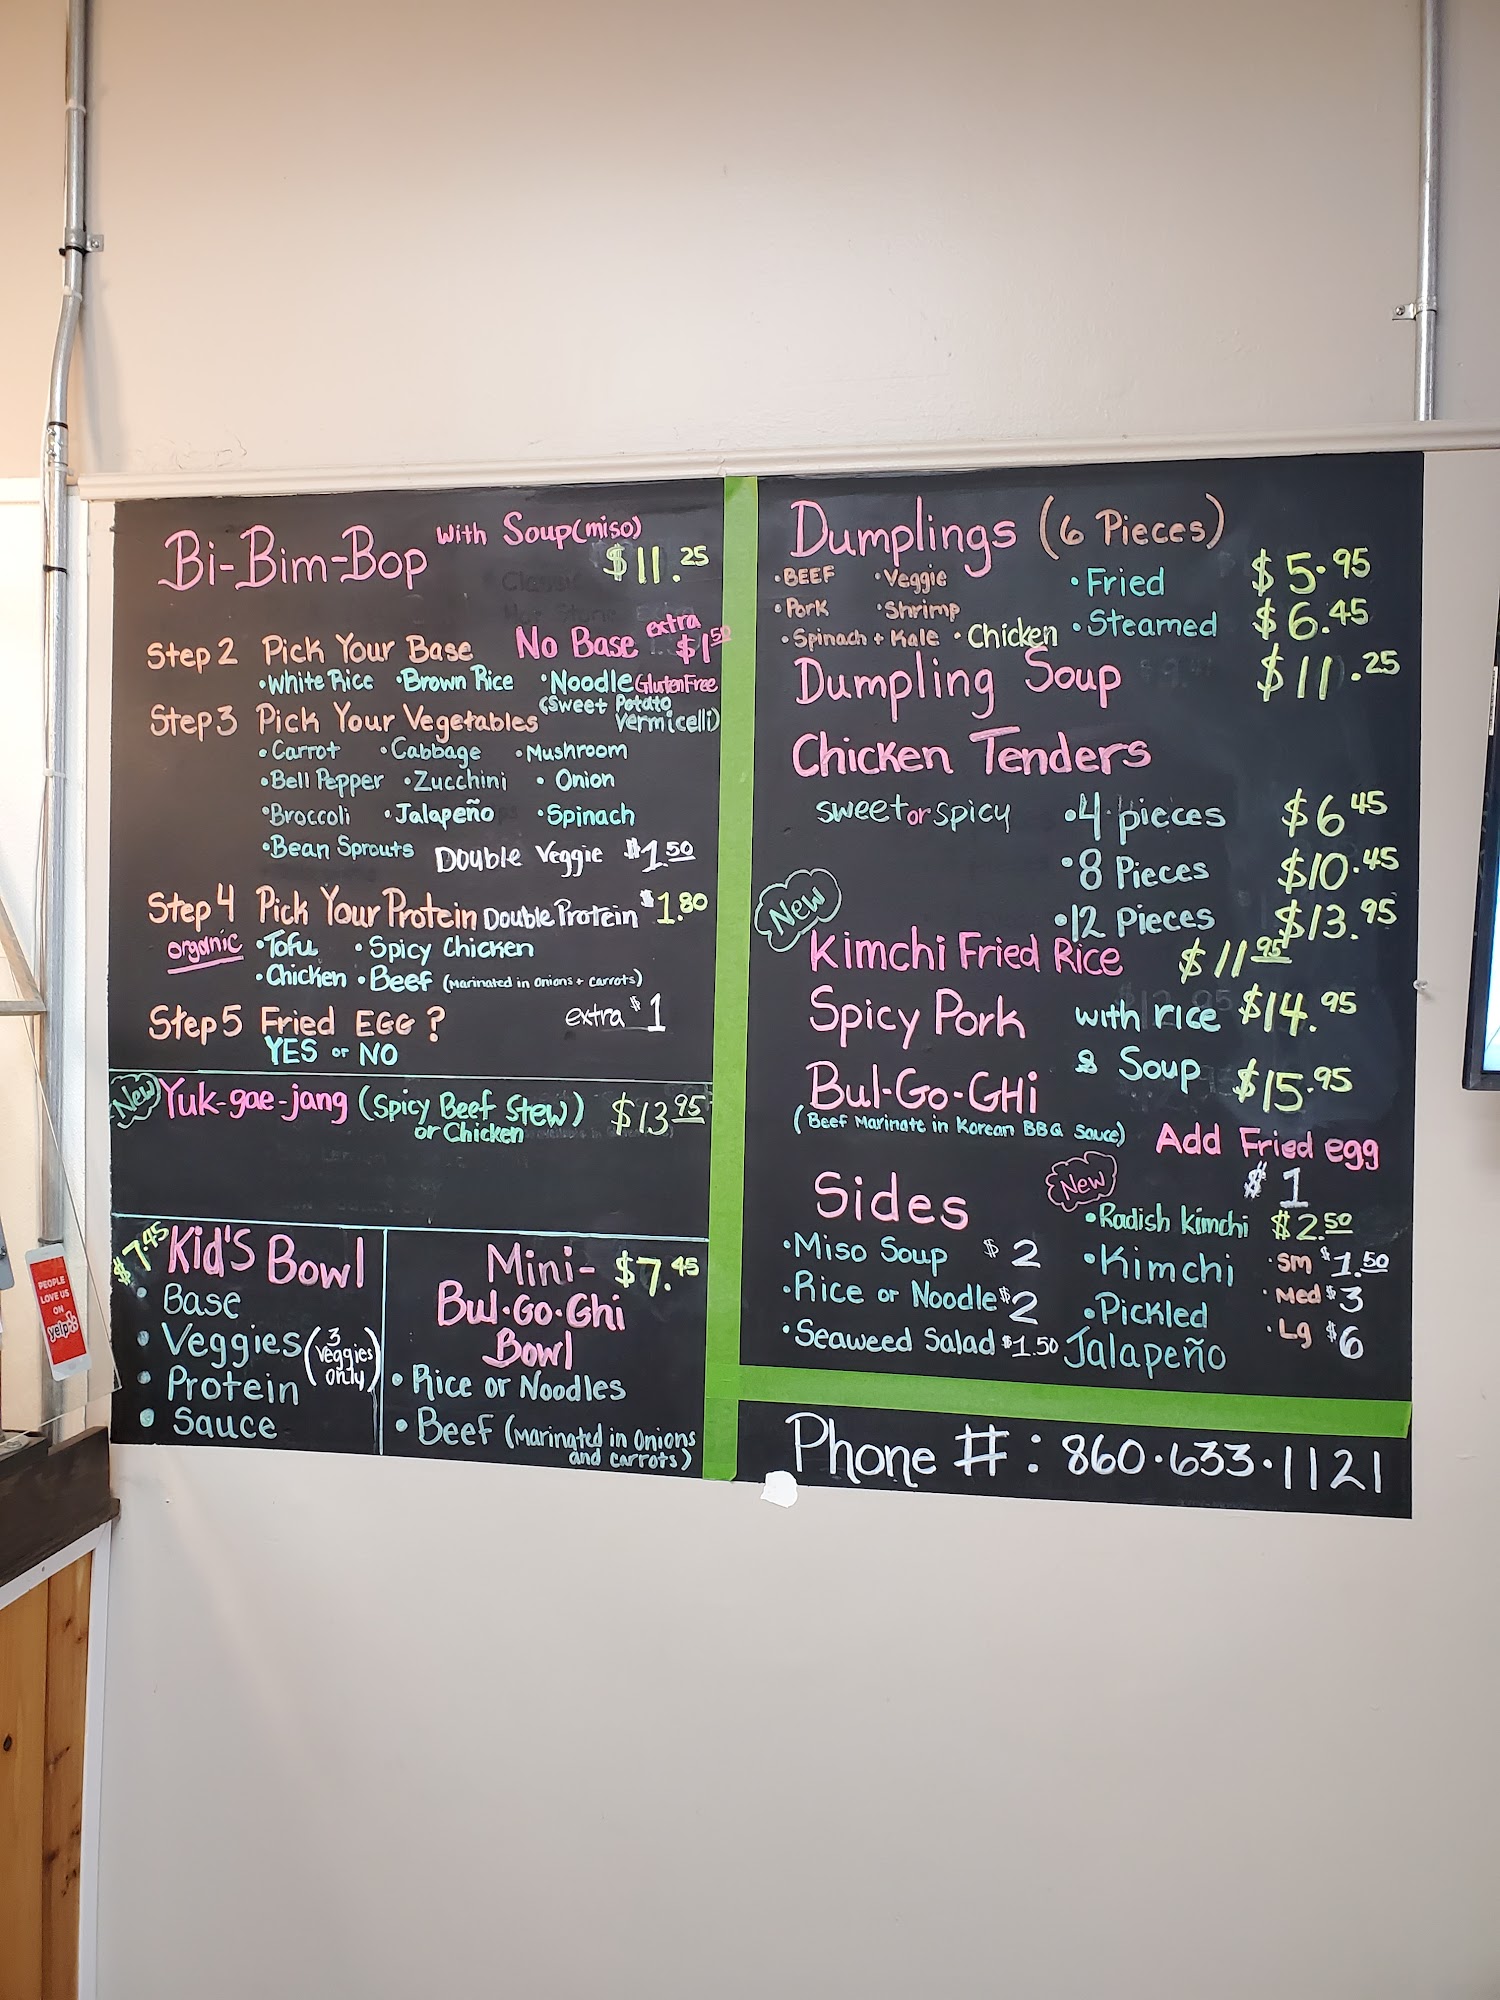 Bi-Bim-Bop with Soup(miso)
$11.25
Step 2 Pick Your Base No Base extra $1.50
•White Rice •Brown Rice •Noodle Gluten Free
(Sweet Potato Vermicelli)
Step 3 Pick Your Vegetables
•Carrot •Cabbage •Mushroom
•Bell Pepper •Zucchini •Onion
•Broccoli •Jalapeño •Spinach
•Bean Sprouts Double Veggie $1.50
Step 4 Pick Your Protein Double Protein $1.80
organic •Tofu •Spicy Chicken
•Chicken •Beef (Marinated in Onions + Carrots)
Step 5 Fried EGG? extra $1
YES or NO
New Yuk-gae-jang (Spicy Beef Stew) $13.95
or Chicken
$7.45 Kid's Bowl
• Base
• Veggies (3 Veggies only)
• Protein
• Sauce
Mini- $7.45
Bul-Go-Ghi
Bowl
• Rice or Noodles
• Beef (Marinated in Onions
and carrots)
Dumplings (6 Pieces)
•BEEF •Veggie •Fried $5.95
•Pork •Shrimp •Steamed $6.45
•Spinach + Kale •Chicken
Dumpling Soup $11.25
Chicken Tenders
sweet or spicy •4 pieces $6.45
•8 Pieces $10.45
•12 Pieces $13.95
New
Kimchi Fried Rice $11.95
Spicy Pork with rice $14.95
& Soup
Bul-Go-GHi $15.95
(Beef Marinate in Korean BBQ Sauce)
Add Fried egg
$1
Sides
New
•Radish Kimchi $2.50
•Miso Soup $2
•Rice or Noodle $2
•Seaweed Salad $1.50
•Kimchi •Sm $1.50
•Pickled •Med $3
Jalapeño •Lg $6
Phone #: 860·633·1121
PEOPLE
LOVE US
ON
yelp